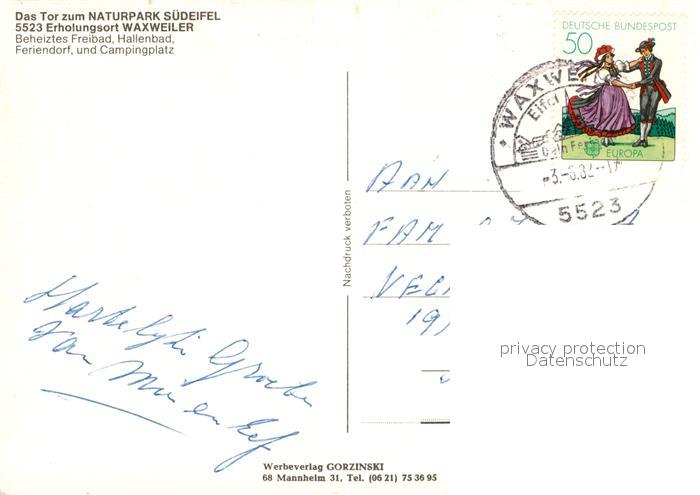 Das Tor zum NATURPARK SÜDEIFEL
5523 Erholungsort WAXWEILER
Beheiztes Freibad, Hallenbad,
Feriendorf, und Campingplatz
DEUTSCHE BUNDESPOST
50
EUROPA
WAXWE
Eifel
-3.-6.82.--17
5523
Nachdruck verboten
AAN
FAM
VEL
19
Hartelijke Groeten
van Mu en Eef
privacy protection
Datenschutz
Werbeverlag GORZINSKI
68 Mannheim 31, Tel. (06 21) 75 36 95